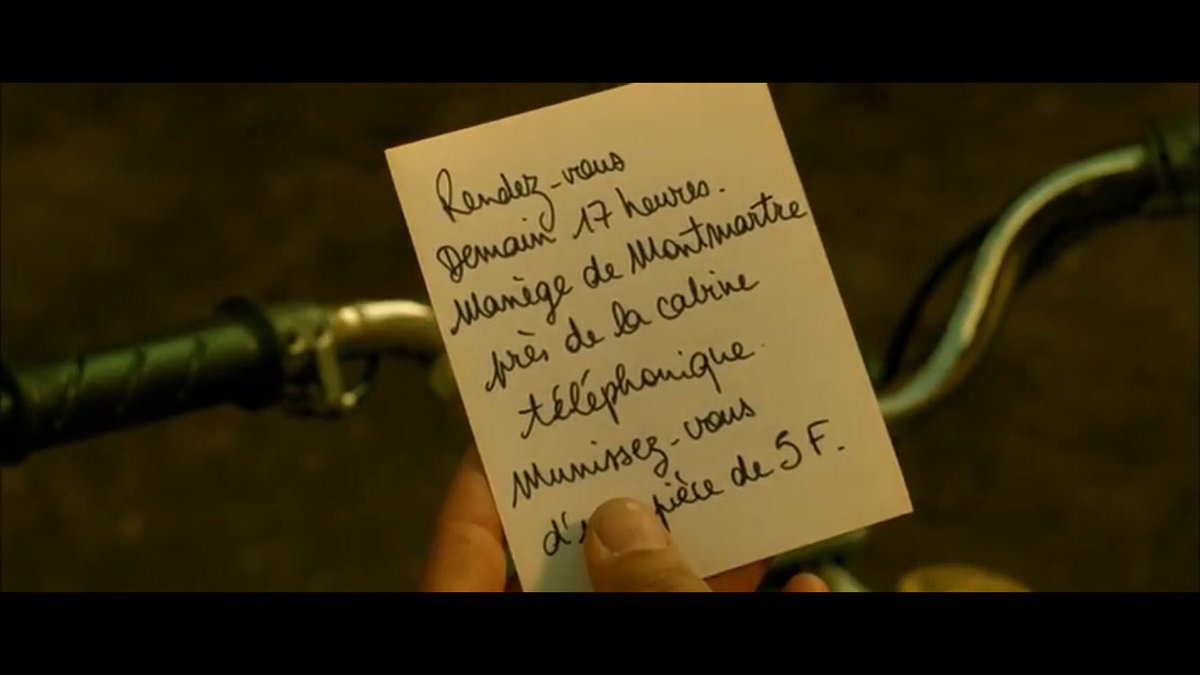 Rendez-vous
Demain 17 heures.
Manège de Montmartre
près de la cabine
téléphonique.
Munissez-vous
d' pièce de 5 F.